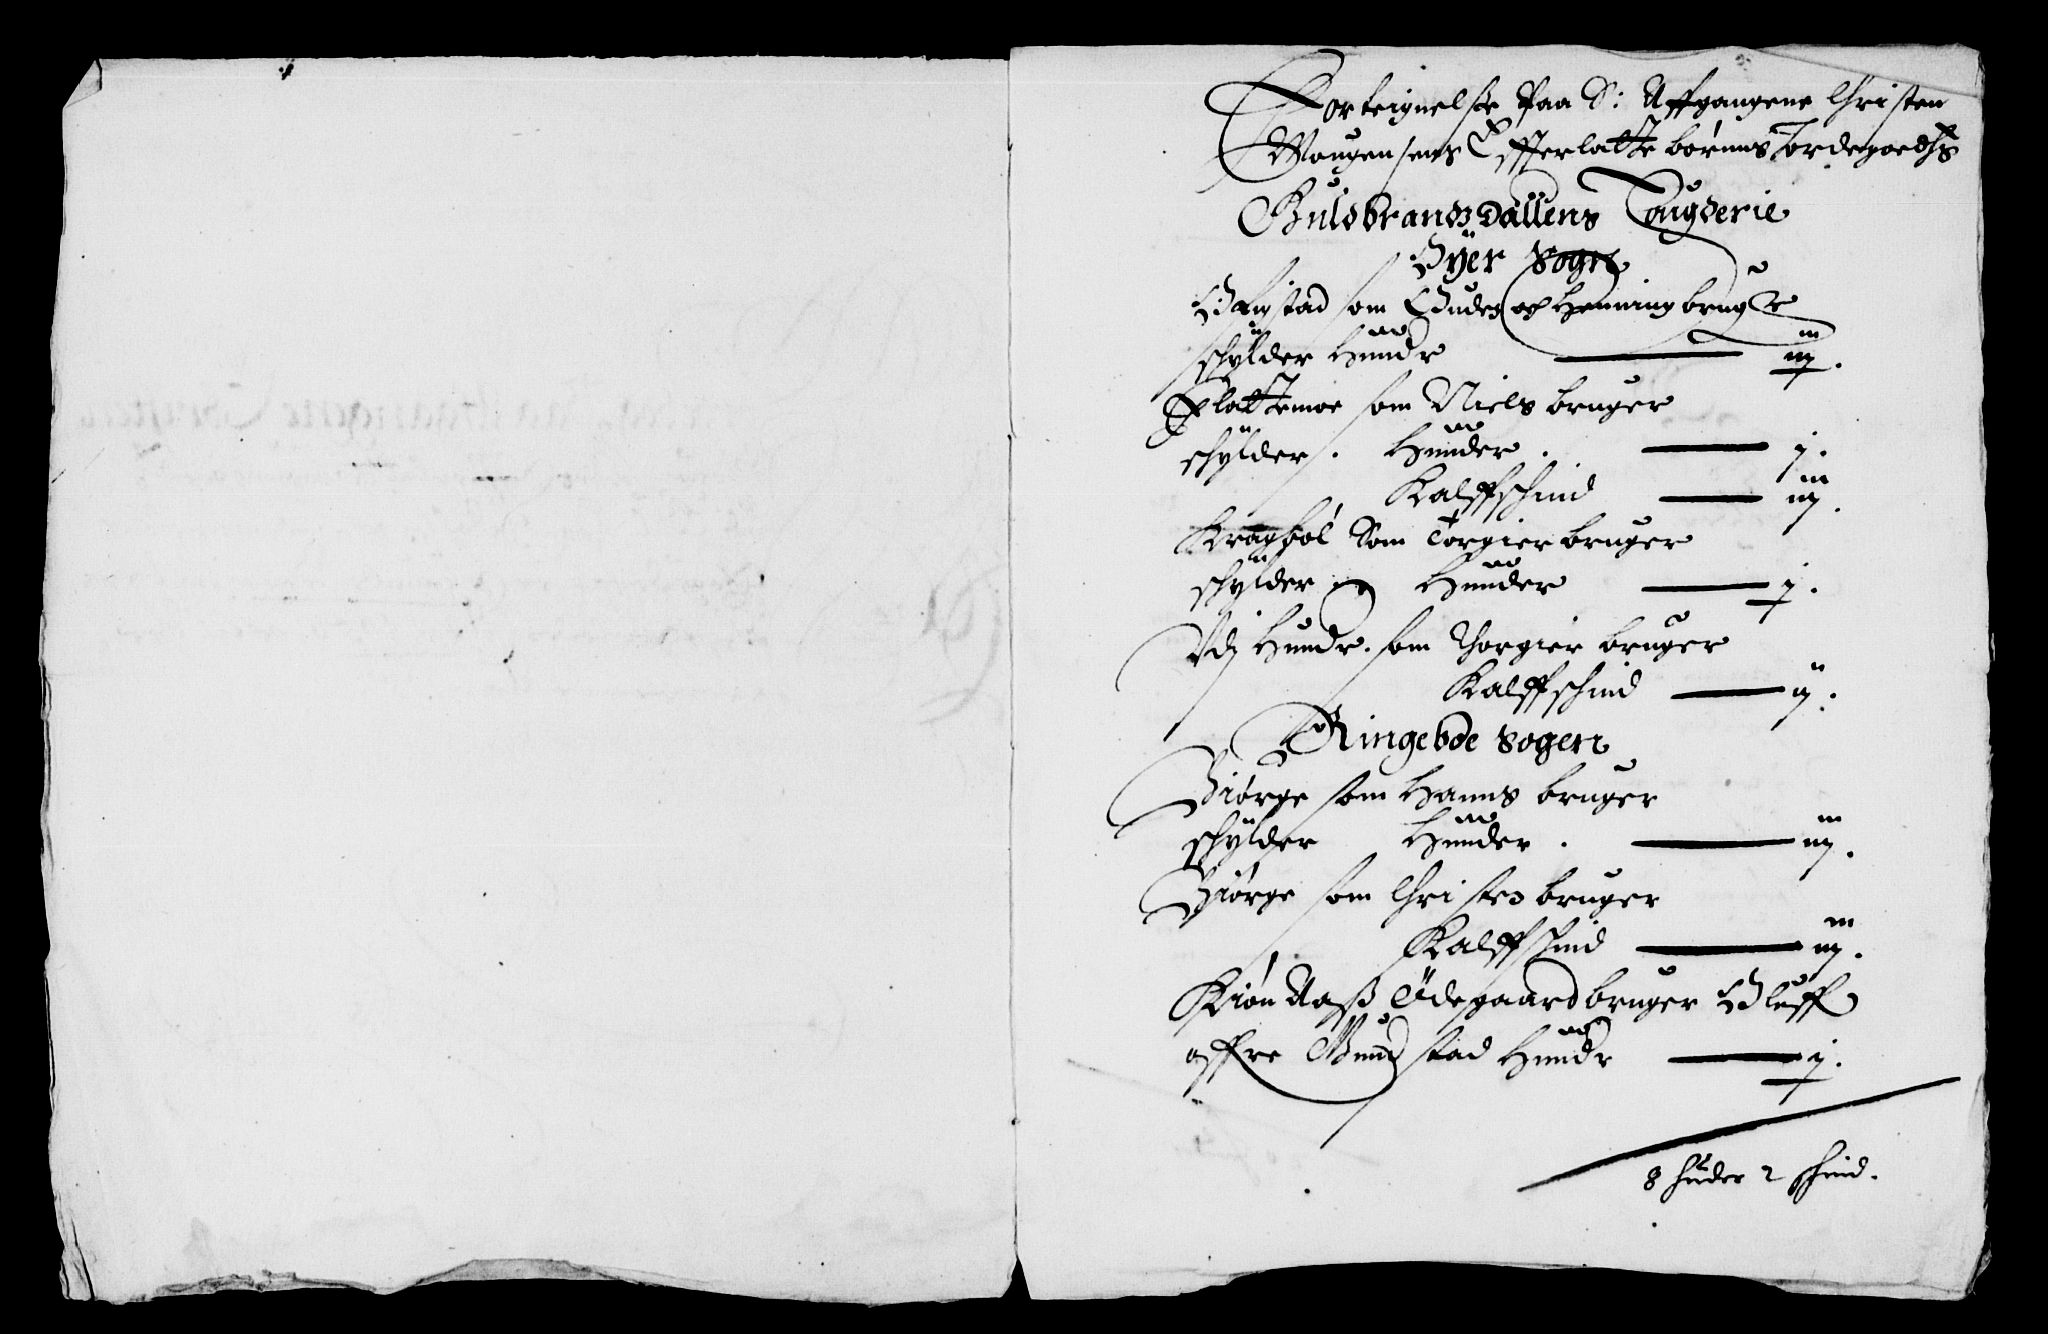 Forteignelße Paa S: Affgangene Christen
Mougensens Efterlatte børnns Jordegoedhs
Guldbrandz Dallens Fougderie
Øyer Sogn
som Gudes och Henning bruger
schylder Hunder — iij.
Slattemoe som Niels bruger
schylder. Hunder. — j.
Kalffschind — iij.
Kraghøl Som Torgier bruger
schylder Hunder — j.
Vdj Hundr. som Thorgier bruger
Kalffschind — ij.
Ringeboe Sogen
Biørge som Hanns bruger
schylder Hunder. — iij.
Biørge som Christen bruger
Kalffschind — iij.
Kiøn Aaß Ødegaard bruger Oluff
offre Mundstad Hundr — j.
8 huder 2 schind.